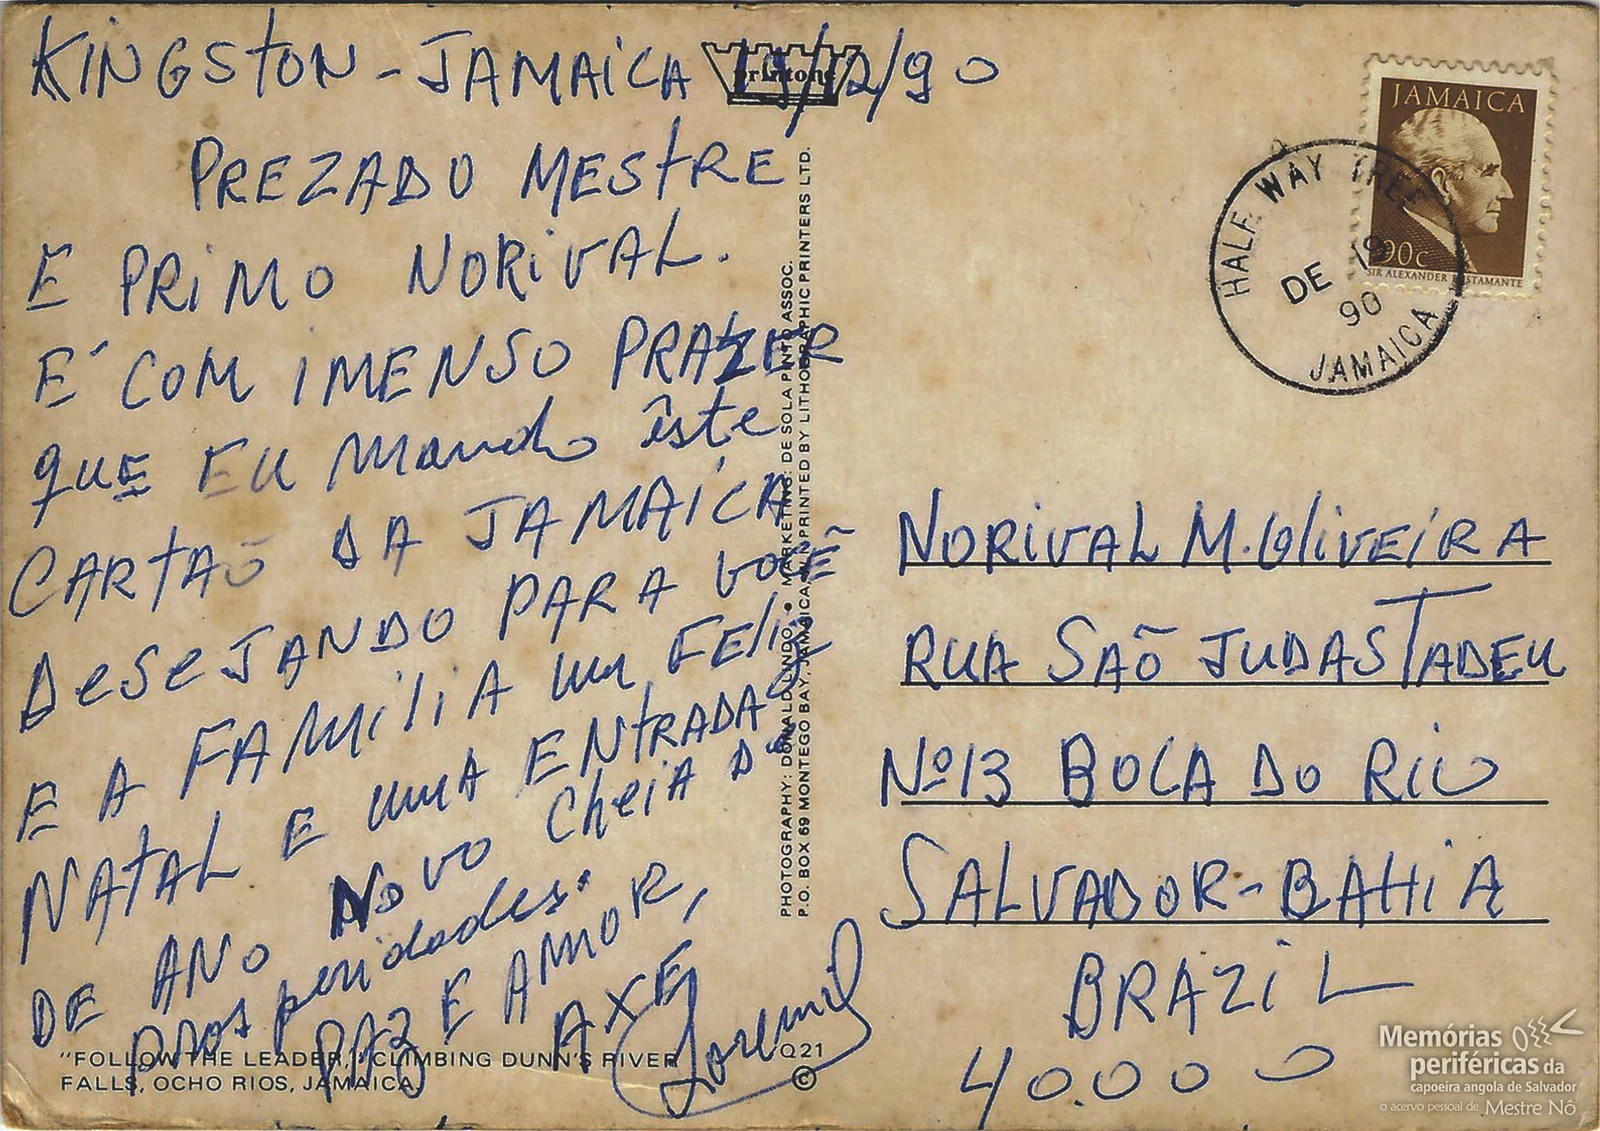 KINGSTON - JAMAICA 19/12/90
printone
PREZADO MESTRE
E PRIMO NORIVAL.
É COM IMENSO PRAZER
QUE EU Mando êste
CARTAÕ DA JAMAICA
DESEJANDO PARA VOCÊ
E A FAMÍLIA UM FELIZ
NATAL E UMA ENTRADA
DE ANO NOVO CHEIA DE
prosperidades.
PAZ E AMOR,
AXE
"FOLLOW THE LEADER," CLIMBING DUNN'S RIVER
FALLS, OCHO RIOS, JAMAICA.
Q21
©
PHOTOGRAPHY: DONALD LINDO. ● MARKETING: DE SOLA PINTO ASSOC.
P.O. BOX 69 MONTEGO BAY, JAMAICA, W.I. PRINTED BY LITHOGRAPHIC PRINTERS LTD.
JAMAICA
90c
SIR ALEXANDER BUSTAMANTE
HALF WAY TREE
DE 19
90
JAMAICA
NORIVAL M. OLIVEIRA
RUA SAÕ JUDAS TADEU
Nº 13 BOCA DO RIO
SALVADOR - BAHIA
BRAZIL
40.000
Memórias
periféricas da
capoeira angola de Salvador
o acervo pessoal de Mestre Nô